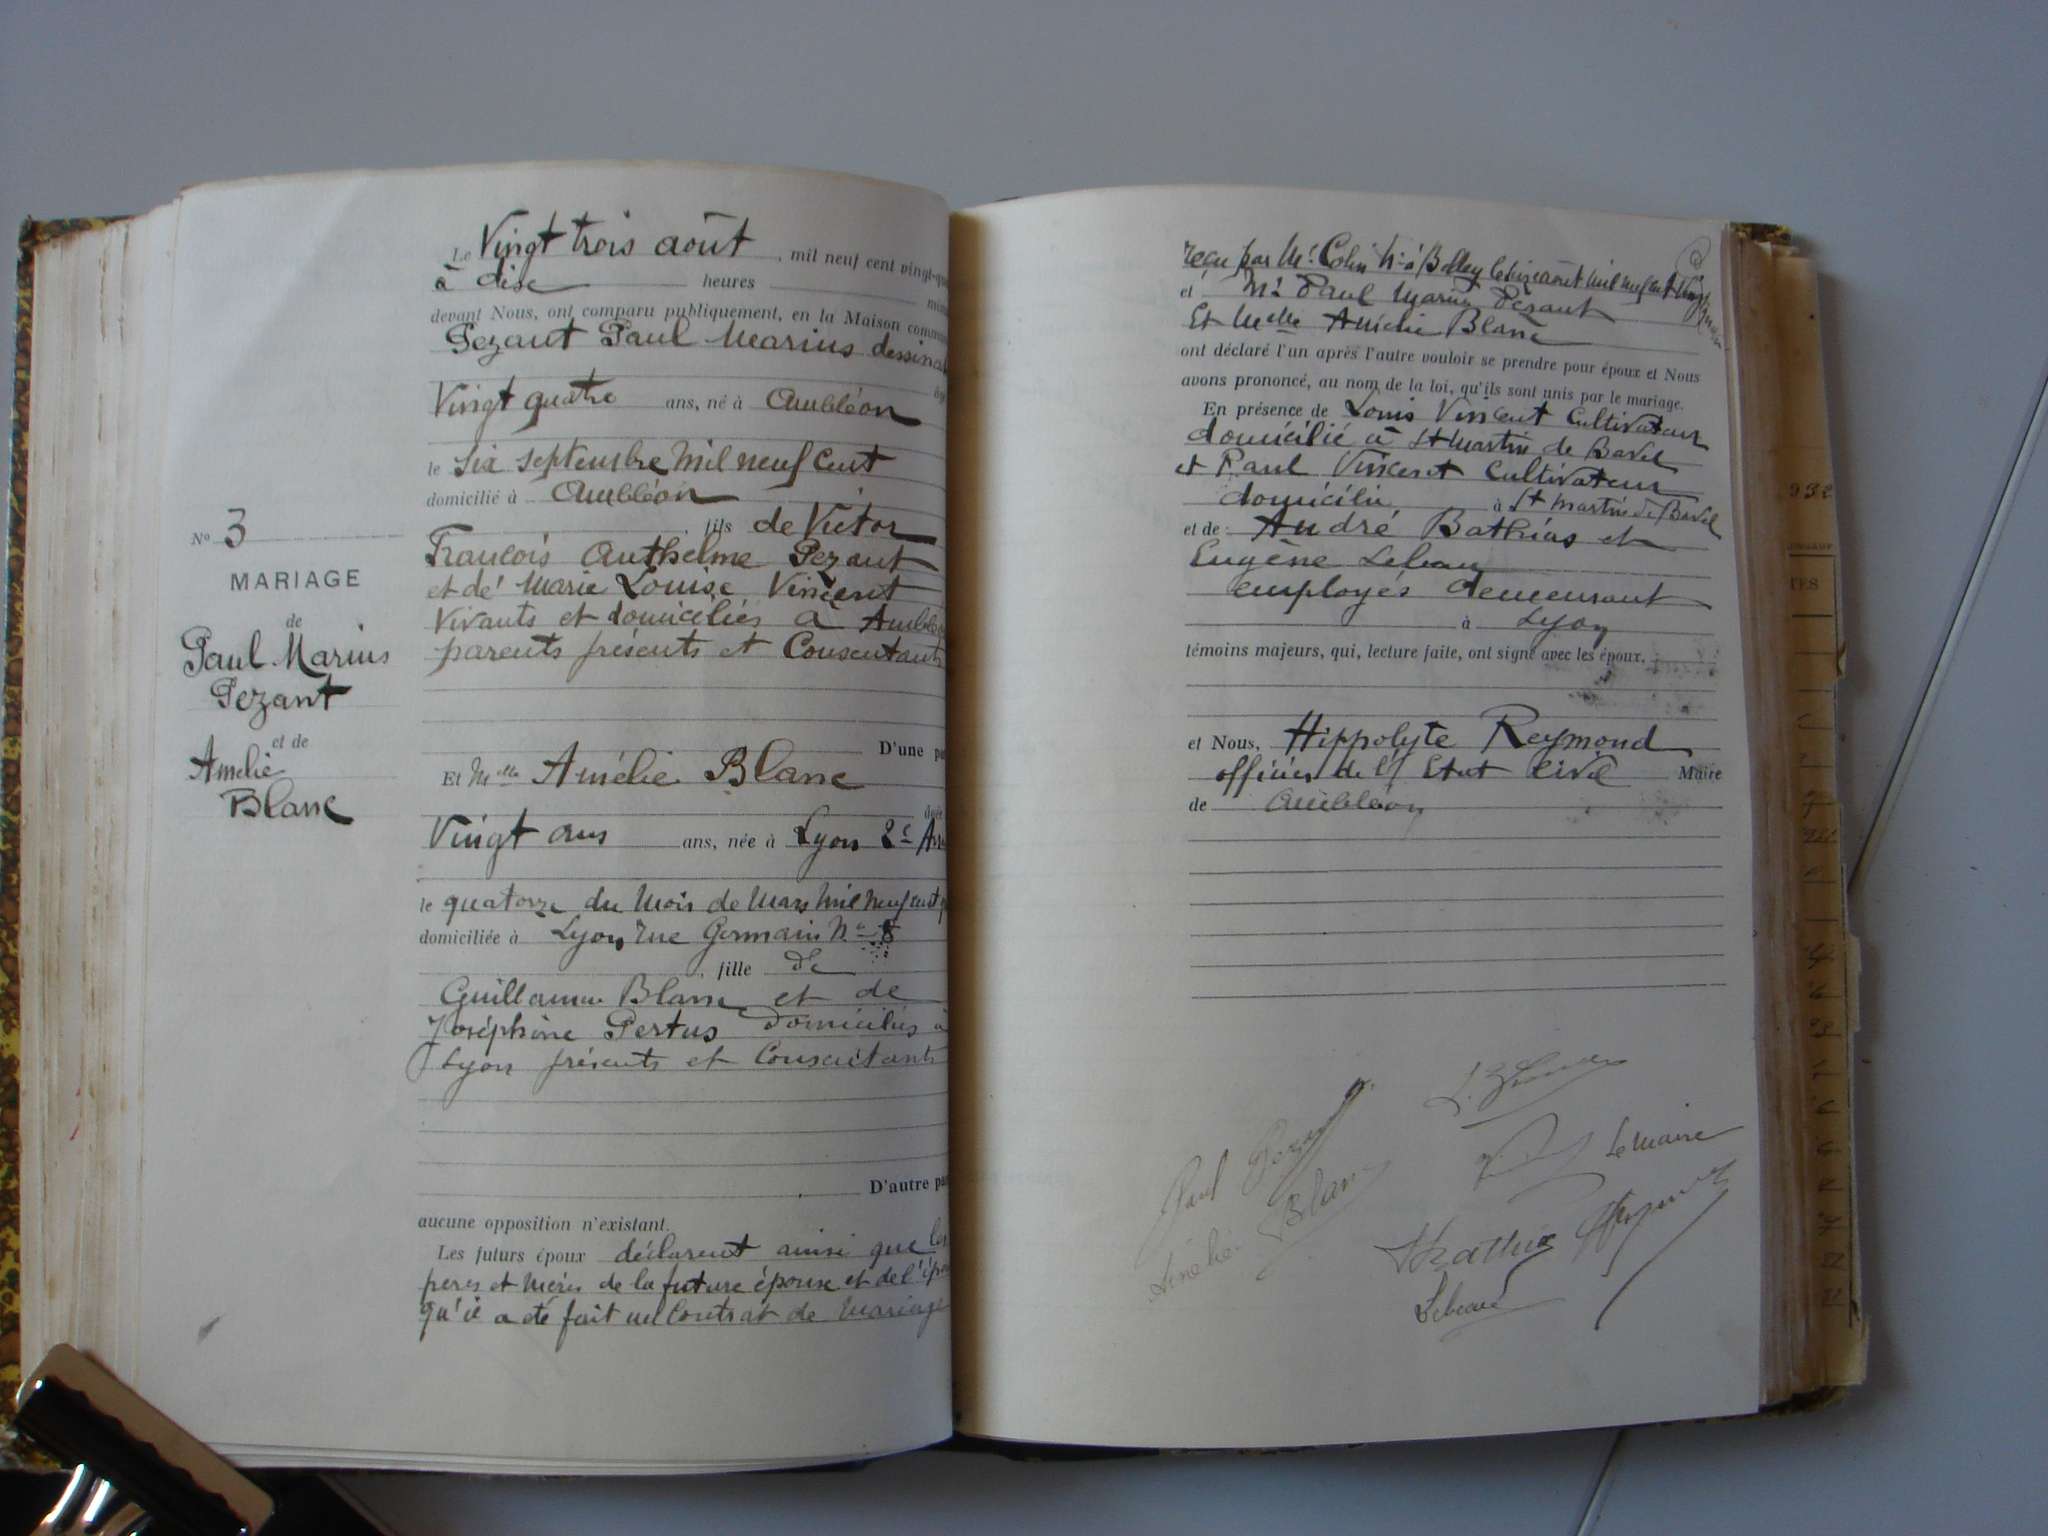 Le Vingt trois août, mil neuf cent vingt-
à dise heures
devant Nous, ont comparu publiquement, en la Maison
Pezant Paul Marius
Vingt quatre ans, né à Ambléon
le six septembre mil neuf cent
domicilié à Ambléon
, fils de Victor
François Anthelme Pezant
et de Marie Louise Vincent
Vivants et domiciliés à
parents présents et Consentants
D'une
Et Melle Amélie Blanc
Vingt ans ans, née à Lyon 2e
le quatorze du mois de Mars mil neuf cent
domiciliée à Lyon rue Germain No 8
, fille de
Guillaume Blanc et de
Joséphine Pertus domiciliés à
Lyon présents et Consentants
D'autre
aucune opposition n'existant.
Les futurs époux déclarent ainsi que les
peres et mères de la future épouse et de
qu'il a été fait un Contrat de Mariage
No 3
MARIAGE
de
Paul Marius
Pezant
et de
Amélie
Blanc
reçu par Me Colin Nre à Belley le août mil neuf cent
et Mr Paul Marius Pezant
Et Melle Amélie Blanc
ont déclaré l'un après l'autre vouloir se prendre pour époux et Nous
avons prononcé, au nom de la loi, qu'ils sont unis par le mariage.
En présence de Louis Vincent Cultivateur
domicilié à St Martin de Bavel
et Paul Vincent Cultivateur
domicilié à St Martin de Bavel
et de André Bathias et
Eugène Lebeau
employés demeurant
à Lyon
témoins majeurs, qui, lecture faite, ont signé avec les époux.
et Nous, Hippolyte Reymond
officier de l'Etat Civil Maire
de Ambléon
Paul
Amélie Blanc
Le Maire